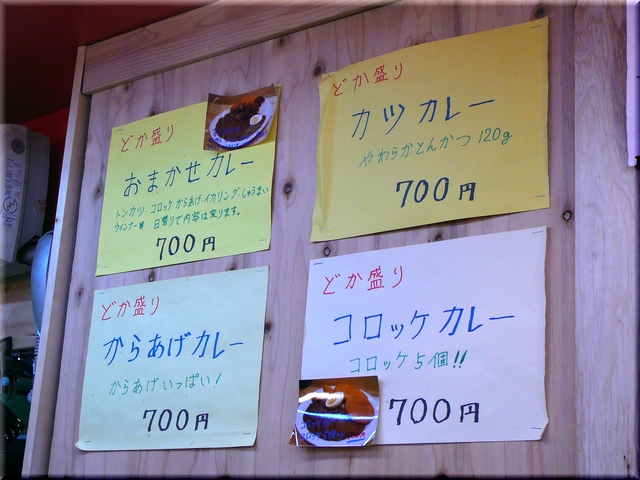 どか盛り
おまかせカレー
トンカツ コロッケ からあげ イカリング しゅうまい
ウインナー等 日替りで内容は変ります。
700円
どか盛り
カツカレー
やわらかとんかつ 120g
700円
どか盛り
からあげカレー
からあげいっぱい!
700円
どか盛り
コロッケカレー
コロッケ5個!!
700円